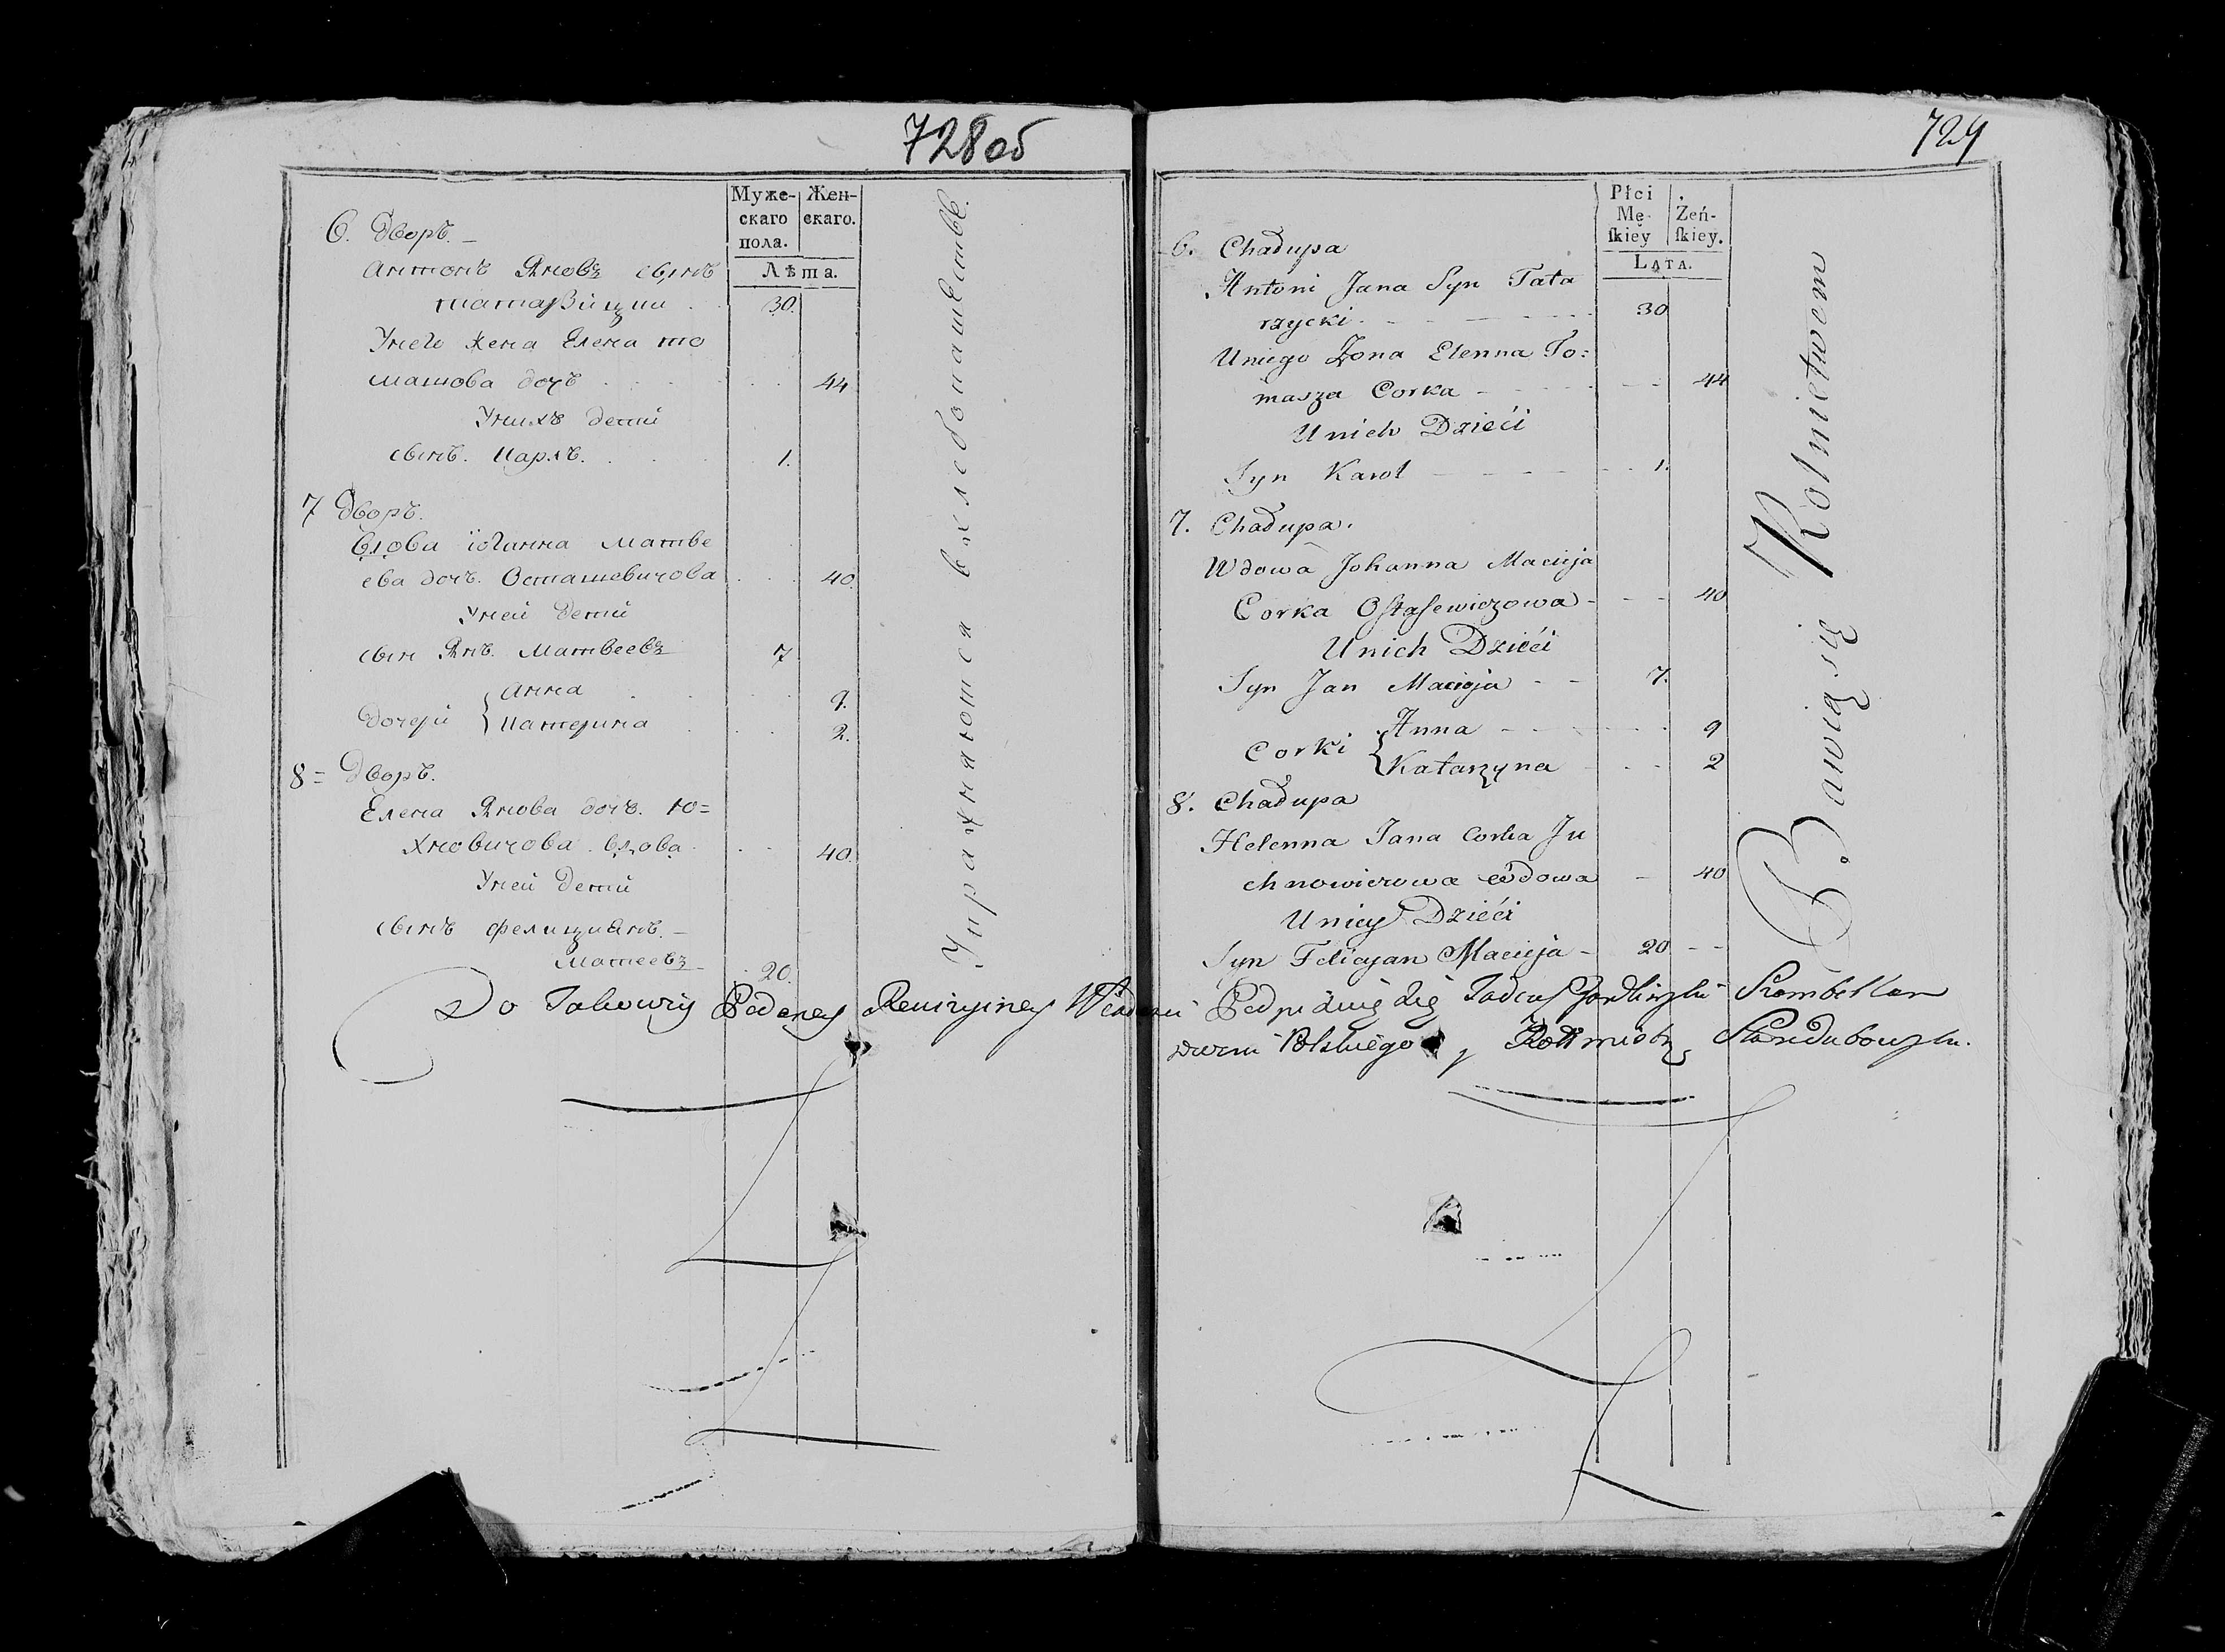 728об
Муже-
скаго
пола.
Жен-
скаго.
Лѣта.
6. Дворъ. –
Антонъ Яновъ сынъ
татаржицки 30.
Унего жена Елена то
машова дочъ 44
Унихъ дети
сынъ. Карлъ. 1.
7 Дворъ.
Вдова иоганна матве
ева дочъ. Осташевичова 40
Уней дети
сын Янъ. Матвеевъ 7
дочери { Анна 9.
Катерина 2.
8= Дворъ.
Елена Янова дочъ. Ю=
хновичова вдова 40.
Уней дети
сынъ фелициянъ. –
Матеевъ 20.
Упражняются вхлебопашестве.
729
Płci
Mę-
skiey
Żeń-
skiey.
Lata.
6. Chadupa
Antoni Jana Syn Tata
rzycki 30
Uniego Żona Elenna To=
masza Corka 44
Unich Dzieći
Syn Karol 1.
7. Chadupa.
Wdowa Johanna Macieja
Corka Ostasewiczowa 40
Unich Dzieći
Syn Jan Macieja 7.
Corki { Anna 9
Katarzyna 2
8. Chadupa
Helenna Jana Corka Ju
chnowiczowa wdowa 40
Uniey Dzieći
Syn Felicyan Macieja 20
Bawią się Rolnictwem
Do Takowey Podaney Rewizyiney Podpisuię się Szambellan
Polskiego y Rotmistrz Starodubowski.